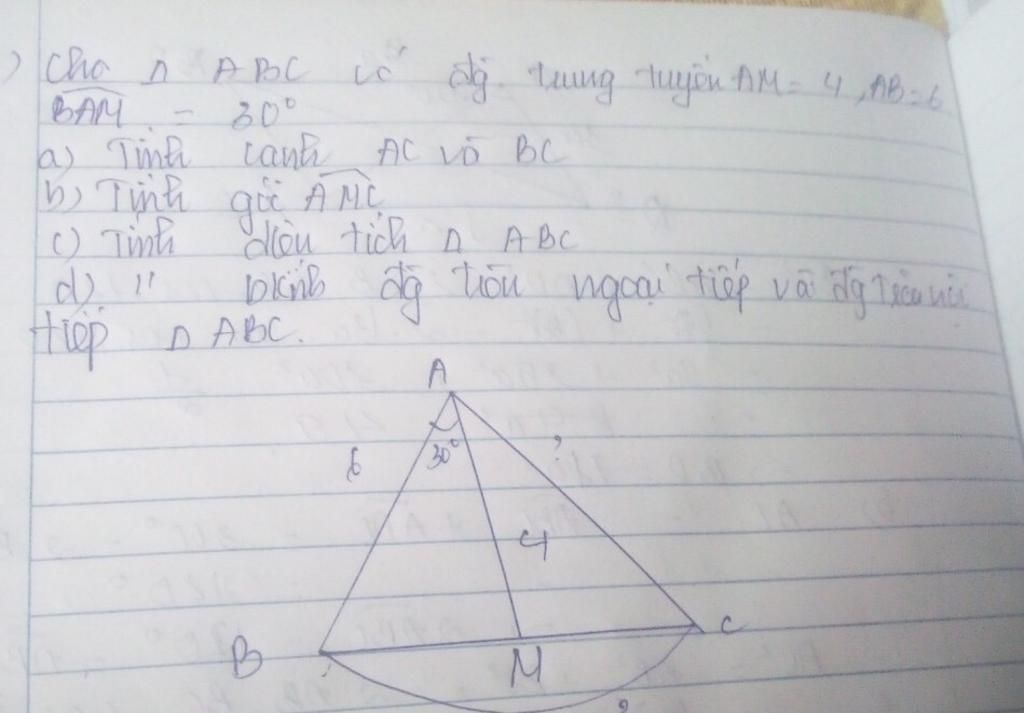 ) Cho Δ ABC có đg trung tuyến AM = 4, AB = 6
BAM = 30°
a) Tính cạnh AC và BC
b) Tính góc AMC
c) Tính diện tích Δ ABC
d) " bkính đg tròn ngoại tiếp và đg tròn nội
tiếp Δ ABC.
A
6 30° ?
4
B M C
?